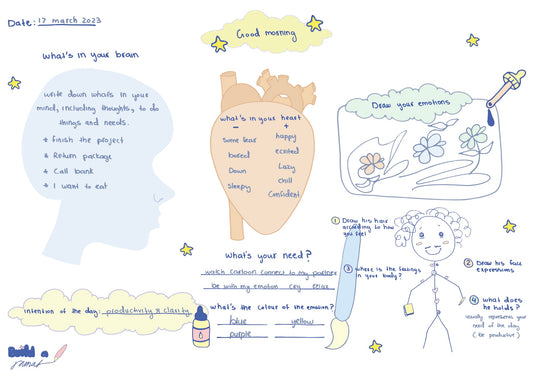 Date: 17 march 2023
Good morning
what's in your brain
write down what's in your
mind, including thoughts, to do
things and needs.
* finish the project
* Return package
* Call bank
* I want to eat
what's in your heart
- +
some fear happy
bored excited
Down Lazy
Sleepy chill
Confident
Draw your emotions
what's your need?
watch cartoon connect to my partner
be with my emotion cry relax
what's the colour of the emotion?
blue yellow
purple
intention of the day: productivity & clarity
1 Draw his hair
according to how
you feel
2 Draw his face
expressions
3 where is the feelings
in your body?
4 what does
he holds?
usually represents your
need of the day
(be productive)
Build a